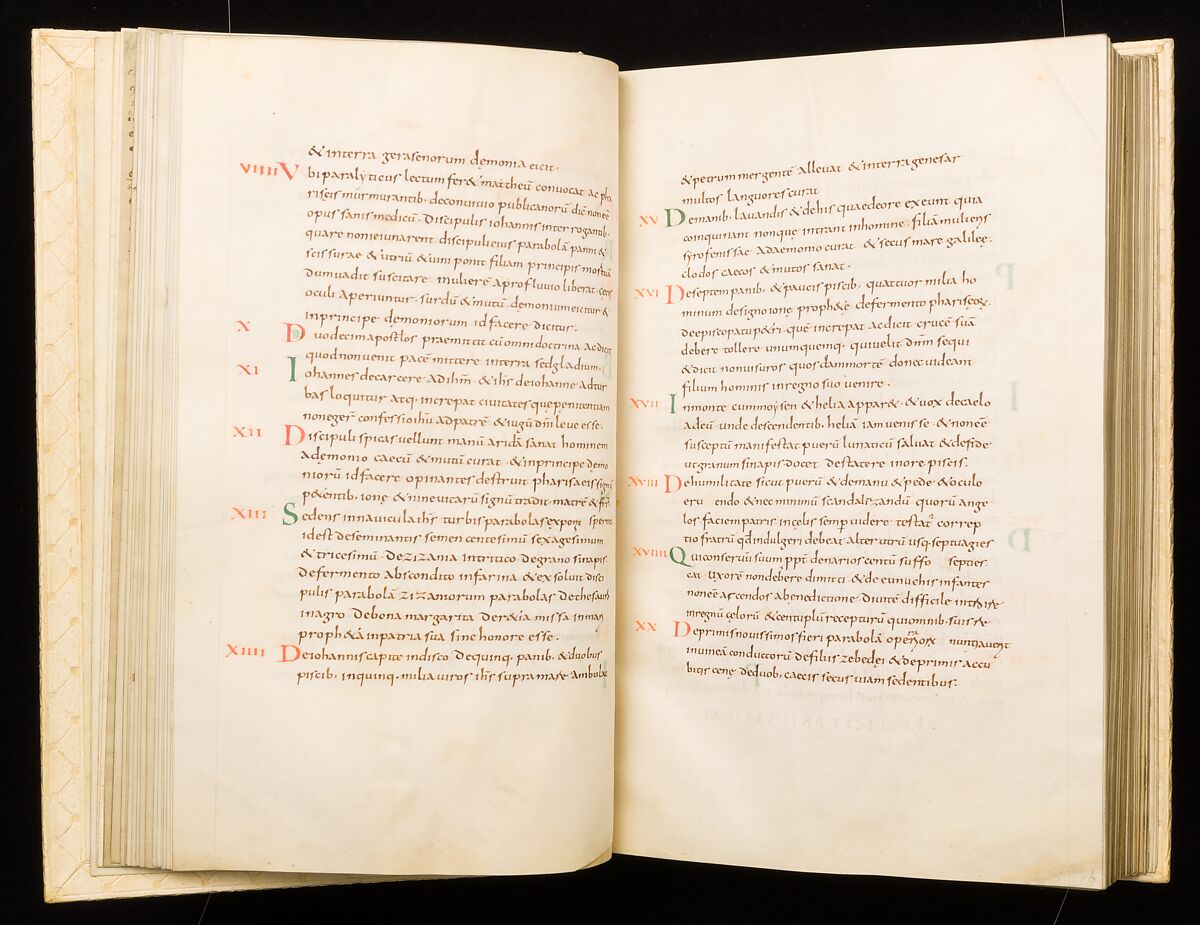 & interra gerasenorum demonia eicit·
VIIII Vbi paralyticus lectum fer& mattheū convocat ac pha
riseis murmurantib; deconvivio publicanorū dic̄ non eē
opus sanis medicū· Discipulis iohannis interrogantib;
quare non ieiunarent discipuli eius parabolā panni &
scissurae & utriū & vini ponit filiam principis mortuā
dum vadit suscitare mulierē aprofluvio liberat· cęcis
oculi aperiuntur· surdū & mutū· demonium eicitur &
inprincipe demoniorum id facere dicitur·
X Duodecim apostłos praemittit cū omni doctrina ac dicit
quod non venit pacē mittere interra sed gladium·
XI Iohannes decarcere ad ihm̄ & ihs̄ deiohanne ad tur
bas loquitur atq; increpat civitates que penitentiam
non eger̄ confessio ihū ad patrē & iugū dnī leve esse·
XII Discipuli spicas vellunt manū aridā sanat hominem
ademonio caecū & mutū curat & inprincipe demo
niorū id facere opinantes destruit pharisaeis signū
p&entib; ionę & ninevitarū signū tradit matrē & fr̄s
XIII Sedens innavicula ihs̄ turbis parabolas exponi
id est deseminantis semen centesimū sexagesimum
& tricesimū· Dezizania intritico degrano sinapis
Defermento abscondito infarina & exsoluit disci
pulis parabolā zizaniorum parabolas dethesauro
inagro· Debona margarita Der&ia missa inmari
proph&ā inpatria sua sine honore esse·
XIIII Deiohannis capite indisco· Dequinq; panib; & duobus
piscib; inquinq; milia viros ihs̄ supra mare ambulat
& petrum mergentē allevat & interra genesar
multos languores curat
XV Demanib; lavandis & dehis quae deore exeunt quia
coinquinant nonque intrant inhomine· filiā mulieris
syrofenissae ademonio curat & secus mare galileę·
clodos caecos & mutos sanat·
XVI Deseptem panib; & paucis piscib; quattuor milia ho
minum designo ionę proph&ę defermento phariseorum·
deepiscopatu p&ri· quē increpat ac dicit crucē suā
debere tollere unumquemq; qui velit dnm̄ sequi
& dicit non visuros quosdam mortē donec videant
filium hominis inregno suo venire·
XVII Inmonte cum moysen & helia appar& & vox decaelo
adeū· unde descendentib; heliā iam venisse & non eē
susceptū manifestat puerū lunaticū salvat & defide
ut granum sinapis docet destatere inore piscis·
XVIII Dehumilitate sicut puerū & demanu & pede & oculo
eru endo & nec minimū scandalizandū quorū ange
los faciem patris incelis semp̄ videre testat̄ correp
tio fratrū qd̄ indulgeri debeat alterutrū usq; septuagies
XVIIII Qui conservū suum ppt̄ denarios centū suffo septies
cat uxorē non debere dimitti & de eunuchis infantes
non eē arcendos abenedictione· Divitē difficile intrare
inregnū cęlorū & centuplū recepturū qui omnib; suis re
XX Deprimis novissimos fieri parabolā operariorum nuntiaverit
invineā conductorū defiliis zebedei & deprimis accu
bitis cenę deduob; caecis secus viam sedentibus·